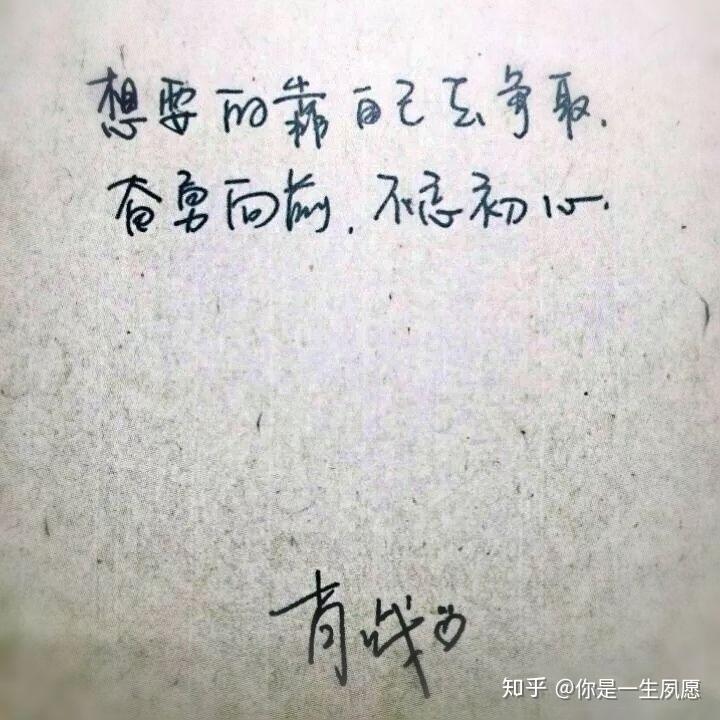 想要的靠自己去争取.
奋勇向前.不忘初心.
知乎 @你是一生夙愿